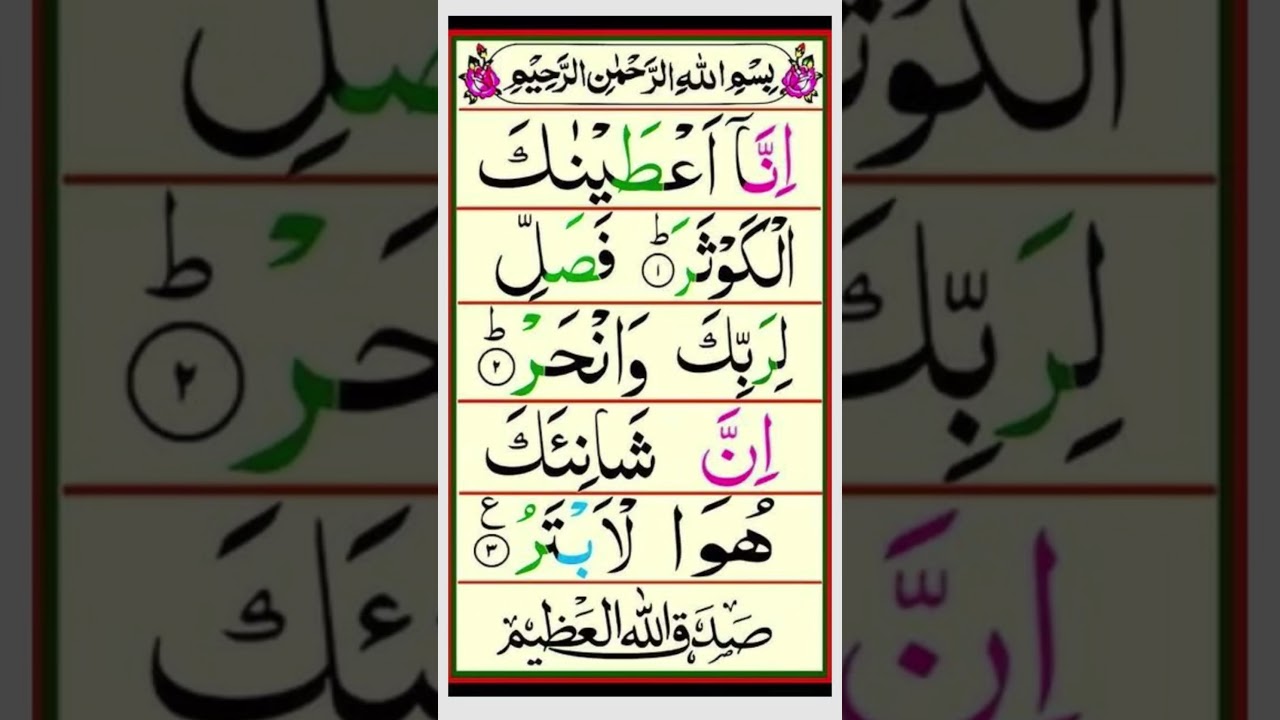 بِسْمِ اللهِ الرَّحْمٰنِ الرَّحِيْمِ
اِنَّآ اَعْطَيْنٰكَ
الْكَوْثَرَ ؕ ۝١ فَصَلِّ
لِرَبِّكَ وَانْحَرْ ؕ ۝٢
اِنَّ شَانِئَكَ
هُوَ الْاَبْتَرُ ۝٣ ع
صَدَقَ اللهُ الْعَظِيْم